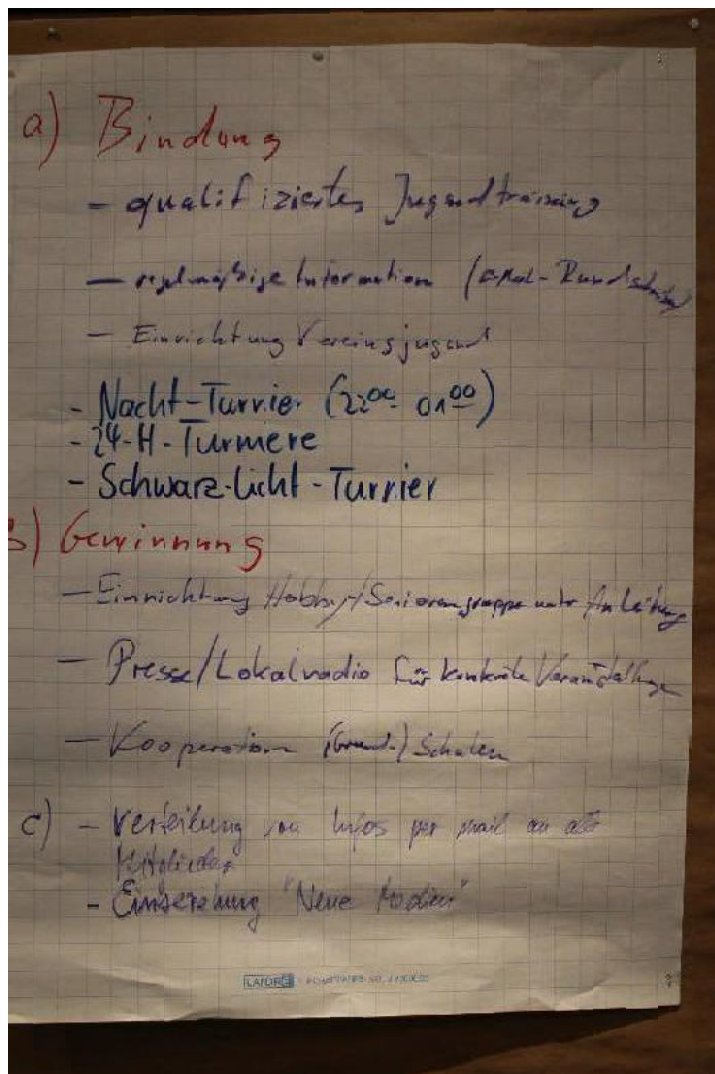 a) Bindung
- qualifiziertes Jugendtraining
- regelmäßige Information (e-Mail-Rundschreiben)
- Einrichtung Vereinsjugend
- Nacht-Turnier (22⁰⁰ - 01⁰⁰)
- 24-H-Turniere
- Schwarz-Licht-Turnier
b) Gewinnung
- Einrichtung Hobby-/Seniorengruppe unter Anleitung
- Presse/Lokalradio für konkrete Veranstaltungen
- Kooperation (Grund-) Schulen
c) - Verteilung von Infos per mail an alle
Mitglieder
- Einbeziehung "Neue Medien"